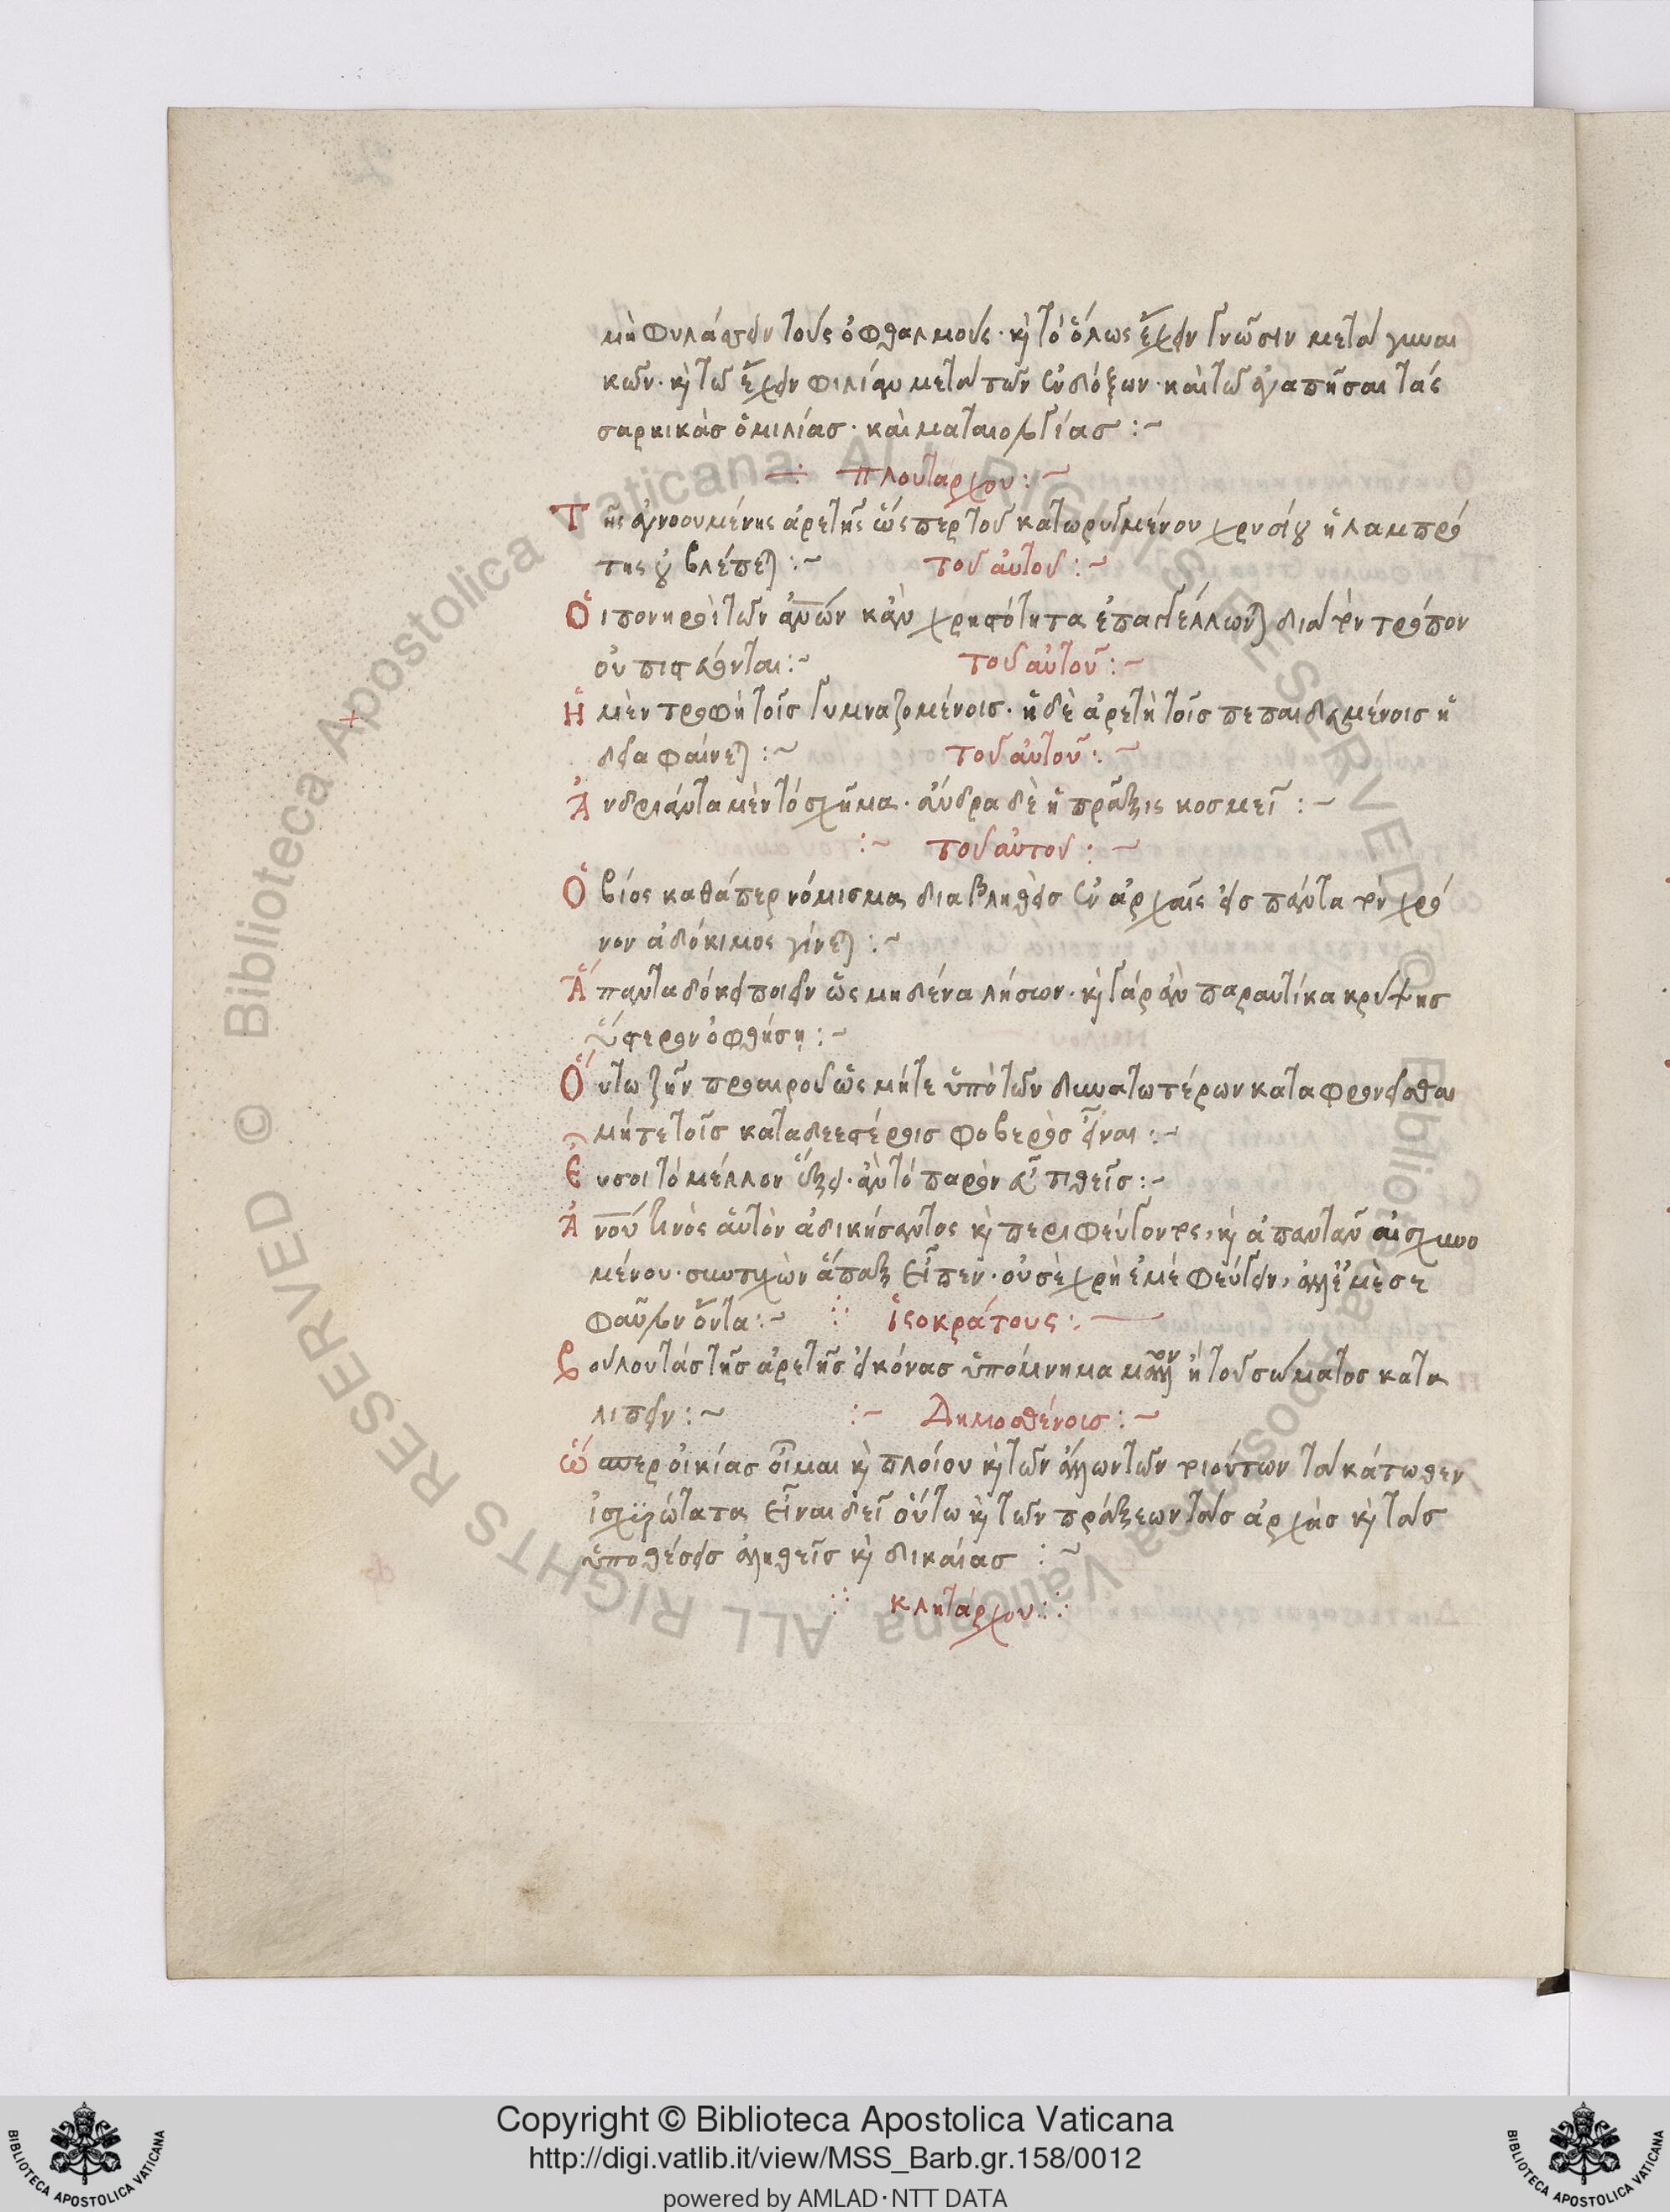 μὴ φυλάττειν τοὺς ὀφθαλμούς· κ τὸ ὅλως ἔχειν γνῶσιν μετὰ γυναι
κῶν· κ τὸ ἔχειν φιλίαν μετὰ τῶν ἐνδόξων· καὶ τὸ ἀγαπῆσαι τὰς
σαρκικὰσ ὁμιλίασ· καὶ ματαιολογίασ :~
Πλουτάρχου :~
Τῆς ἀγνοουμένης ἀρετῆς ὥςπερ τοῦ κατωρυγμένου χρυσίου ἡ λαμπρό
της οὐ βλέπεται :~ τοῦ αὐτοῦ :~
Οἱ πονηροὶ τῶν ἀνων κἂν χρηστότητα ἐπαγγέλλωνται διὰ τὸν τρόπον
οὐ πιστεύονται :~ τοῦ αὐτοῦ :~
Ἡ μὲν τροφὴ τοῖσ γυμναζομένοισ· ἡ δὲ ἀρετὴ τοῖσ πεπαιδευμένοισ ἡ
δεῖα φαίνεται :~ τοῦ αὐτοῦ :~
Ἀνδριάντα μὲν τὸ σχῆμα· ἄνδρα δὲ ἡ πρᾶξις κοσμεῖ :~
:~ τοῦ αὐτοῦ :~
Ὁ βίος καθάπερ νόμισμα διαβληθεὶσ ἐν ἀρχαῖς εἰσ πάντα τὸν χρό
νον ἀδόκιμος γίνεται :~
Ἅπαντα δόκει ποιεῖν ὡς μηδένα λήσων· κ γὰρ ἂν παραυτίκα κρύψησ
ὕστερον ὀφθήσῃ :~
Οὕτω ζῆν προαιροῦ ὡς μήτε ὑπὸ τῶν δυνατωτέρων καταφρονεῖσθαι
μήτε τοῖσ καταδεεστέροισ φοβερὸσ εἶναι :~
Εὖ σοι τὸ μέλλον ἕξει· ἂν τὸ παρὸν εὖ τιθεῖσ :~
Ἀνου τινὸς αὐτὸν ἀδικήσαντος κ περιφεύγοντος, κ ἀπαντᾶν αἰσχυνο
μένου· ἅπαξ εἶπεν· οὐ σὲ χρὴ ἐμὲ φεύγειν, ἀλλ' ἐμὲ σε
φαῦλον ὄντα :~ ἰσοκράτους :
Βούλου τὰσ τῆσ ἀρετῆσ εἰκόνασ ὑπόμνημα μᾶλλον ἢ τοῦ σώματοσ κατα
λιπεῖν :~ :~ Δημοσθένουσ :~
Ὥσπερ οἰκίασ οἶμαι κ πλοίου κ τῶν ἄλλων τῶν τοιούτων τὰ κάτωθεν
ἰσχυρότατα εἶναι δεῖ οὕτω κ τῶν πράξεων τὰσ ἀρχὰσ κ τὰσ
ὑποθέσεισ ἀληθεῖσ κ δικαίασ :~
κλητάρχου :
© Biblioteca Apostolica Vaticana ALL RIGHTS RESERVED © Biblioteca Apostolica Vaticana ALL RIGHTS RESERVED
Copyright © Biblioteca Apostolica Vaticana
http://digi.vatlib.it/view/MSS_Barb.gr.158/0012
powered by AMLAD·NTT DATA
BIBLIOTECA APOSTOLICA VATICANA
BIBLIOTECA APOSTOLICA VATICANA